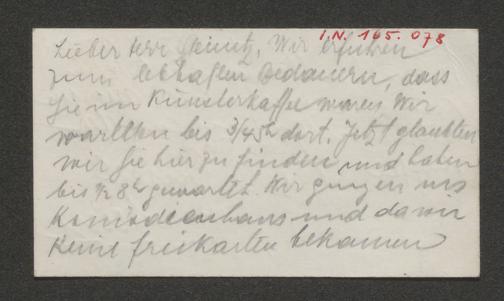 I.N. 165.078
Lieber Herr Steinitz, Wir erfuhren
zum lebhaften Bedauern, dass
Sie im Künstlerkaffe waren Wir
warteten bis 3/4 5h dort. Jetzt glaubten
wir Sie hier zu finden und haben
bis 1/2 8h gewartet. Wir gingen ins
Komödienhaus und da wir
keine Freikarten bekamen